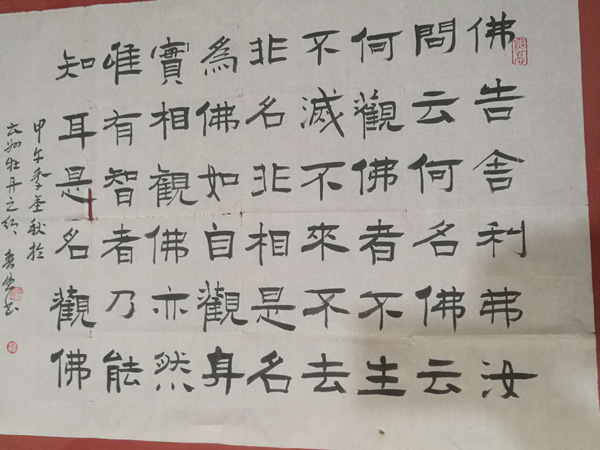 佛告舍利弗汝
問云何名佛云
何觀佛者不生
不滅不來不去
非名非相是名
為佛如自觀身
實相觀佛亦然
唯有智者乃能
知耳是名觀佛
甲午季金秋於
牡丹之鄉